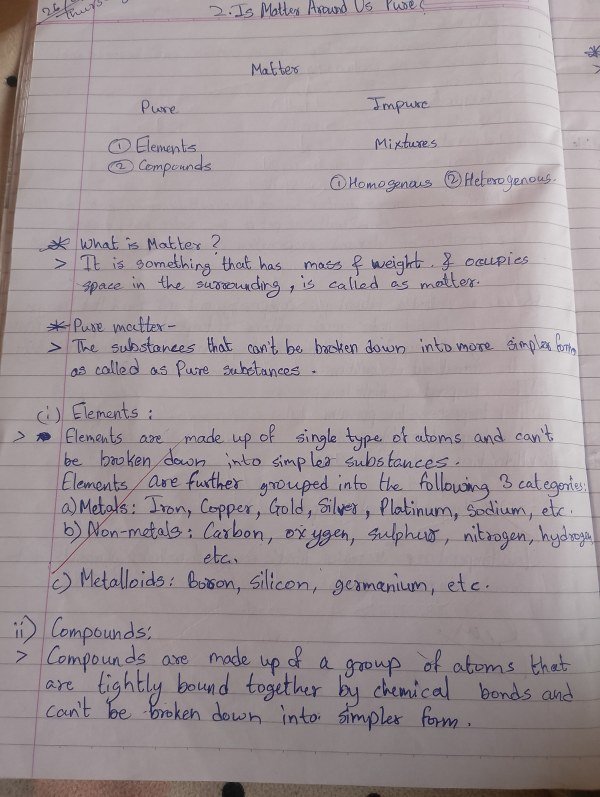 26/
Thurs
2. Is Matter Around Us Pure?
Matter
Pure Impure
① Elements Mixtures
② Compounds
① Homogenous ② Heterogenous.
* What is Matter?
> It is something that has mass & weight. & occupies
space in the surrounding, is called as matter.
* Pure matter-
> The substances that can't be broken down into more simpler form
as called as Pure substances.
(i) Elements:
> • Elements are made up of single type of atoms and can't
be broken down into simpler substances.
Elements are further grouped into the following 3 categories:
a) Metals: Iron, Copper, Gold, Silver, Platinum, Sodium, etc.
b) Non-metals: Carbon, oxygen, sulphur, nitrogen, hydrogen,
etc.
c) Metalloids: Boron, silicon, germanium, etc.
ii) Compounds:
> Compounds are made up of a group of atoms that
are tightly bound together by chemical bonds and
can't be broken down into simpler form.